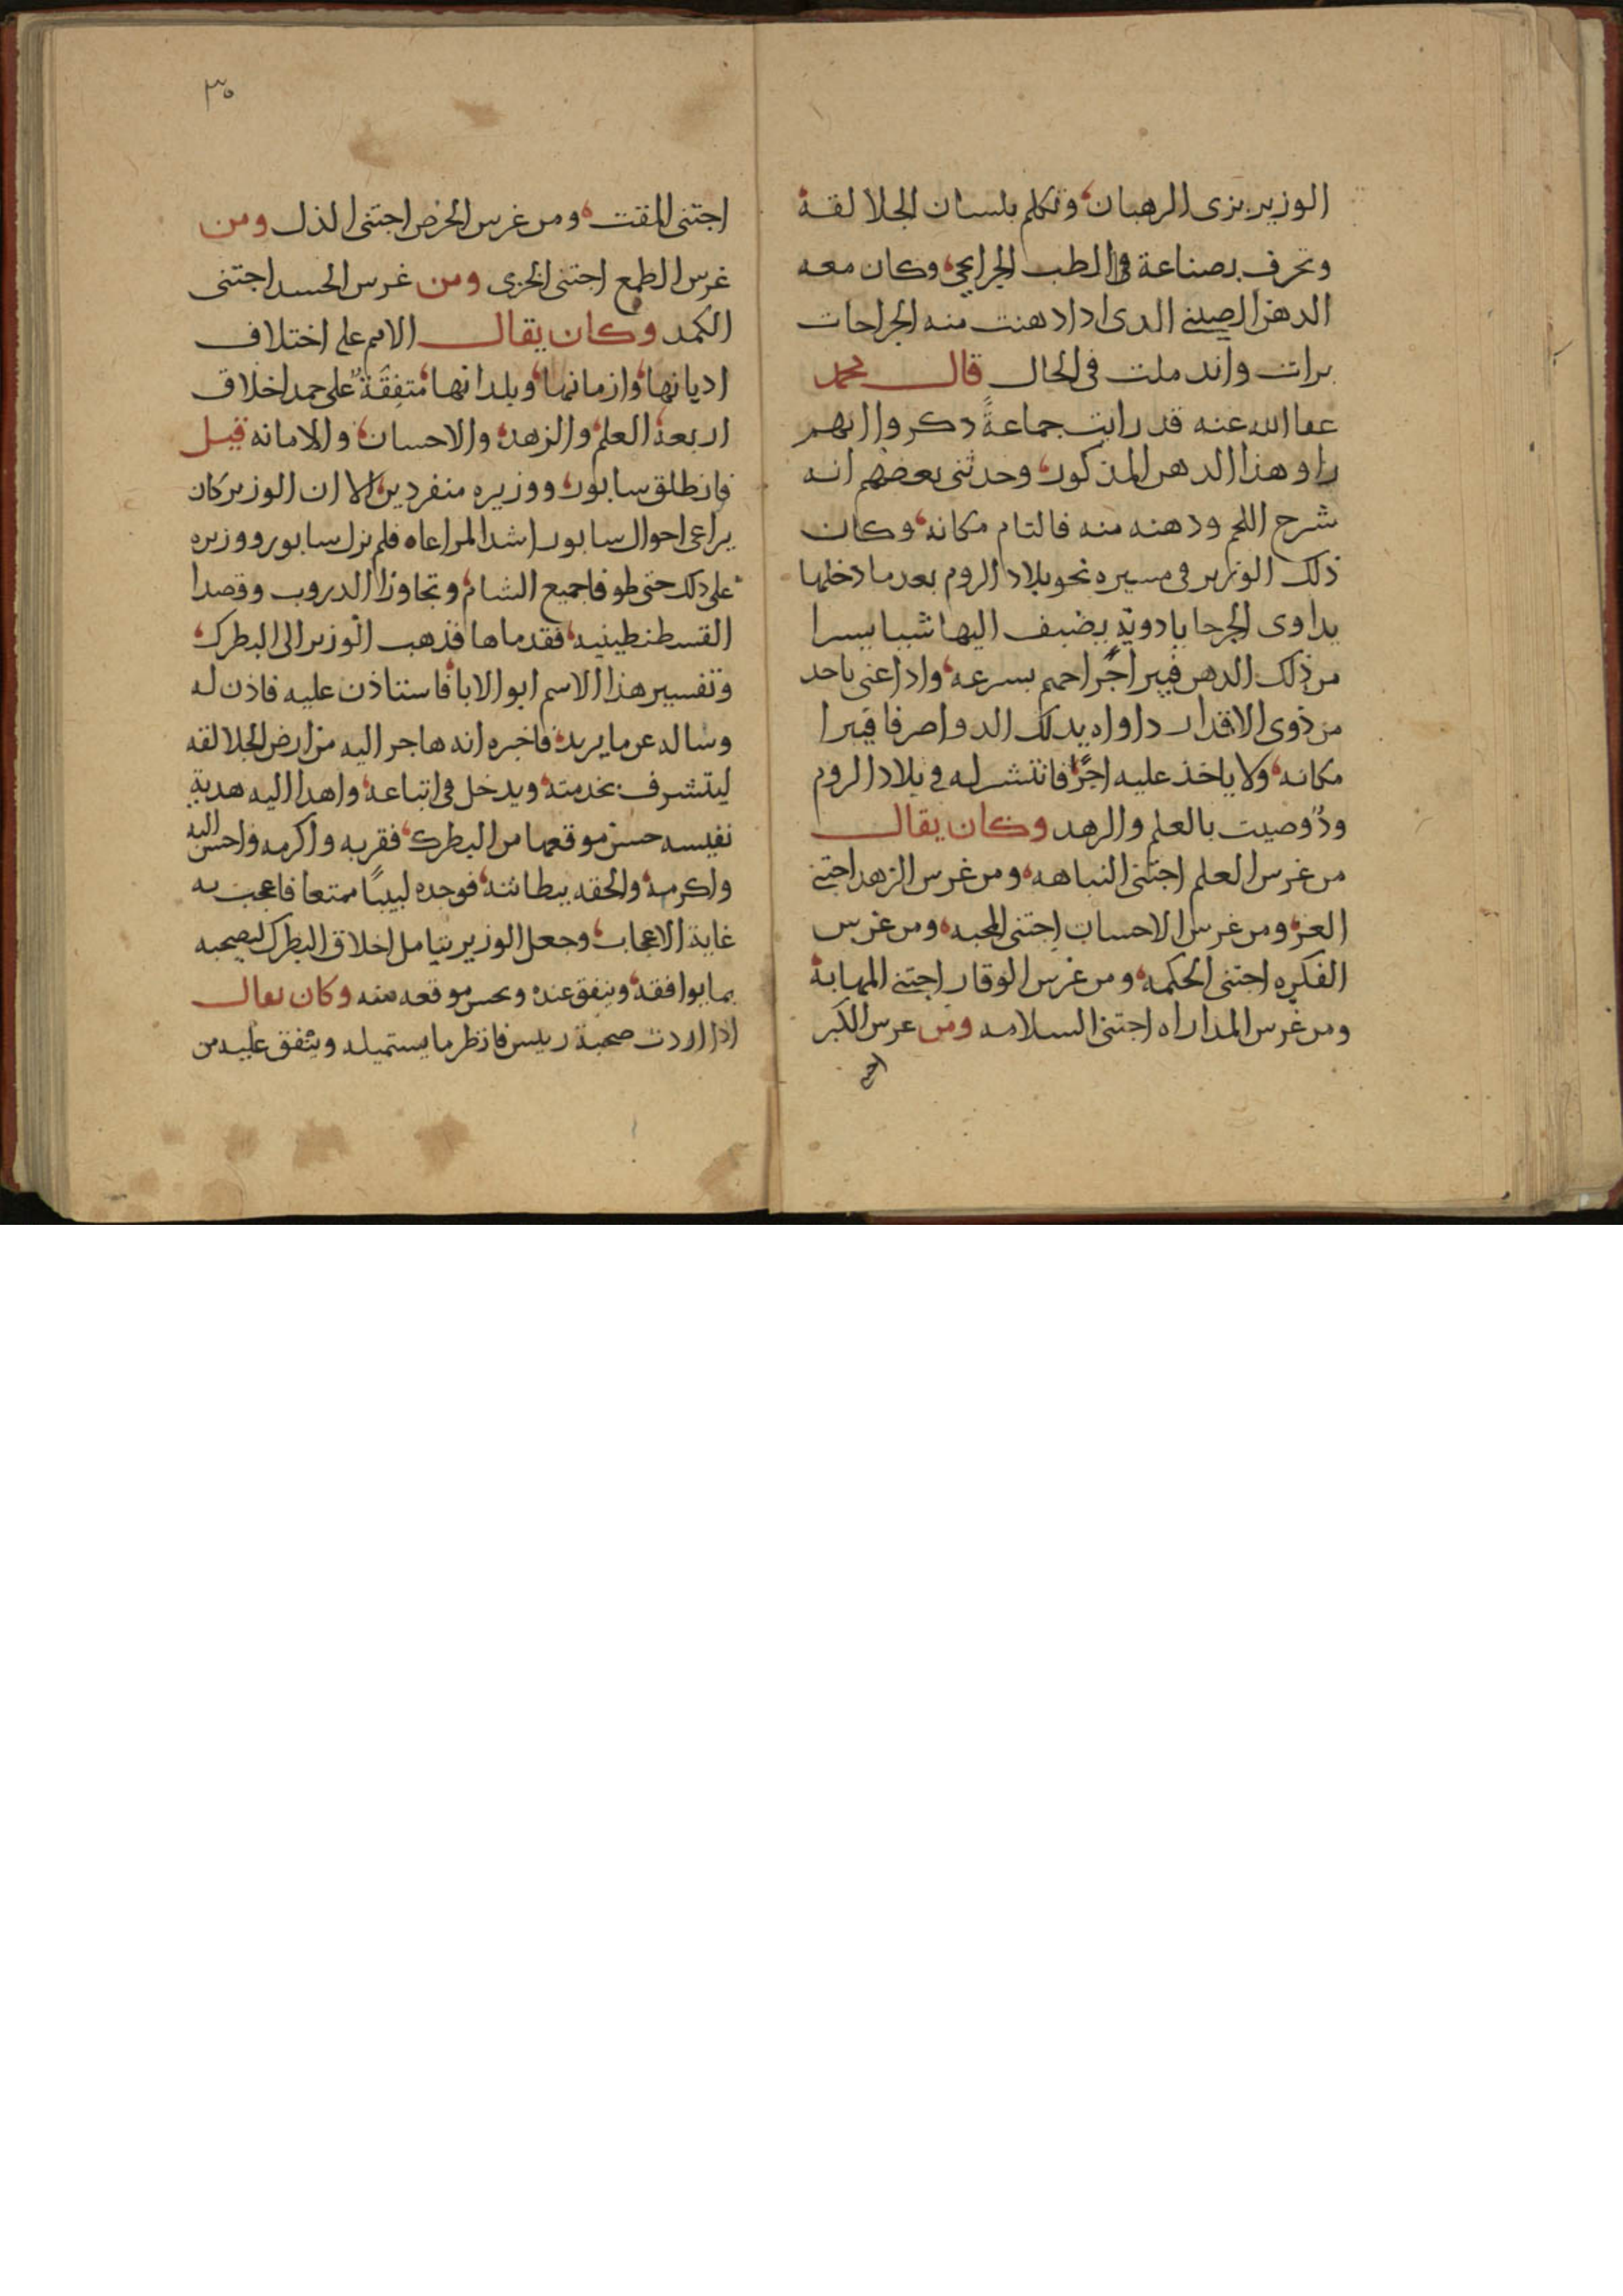 الوزير بزى الرهبان وتكلم بلسان الجلالقة
وتحرف بصناعة فى الطب الجرايحى وكان معه
الدهن الصينى الدى ادا دهنت منه الجراحات
برات واندملت فى الحال قال محمد
عفا الله عنه قد رايت جماعةً دكروا انهم
راو هذا الدهن المذكور وحدثنى بعضهم انه
شرح اللحم ودهنه منه فالتام مكانه وكان
ذلك الوزير فى مسيره نحو بلاد الروم بعد ما دخلها
يداوى الجرحا بادوية يضيف اليها شيا يسرا
من ذلك الدهن فيبرا جراحهم بسرعه واداعنى باحد
من ذوى الاقدار داواه بدلك الدوا صرفا فيبرا
مكانه ولا ياخذ عليه اجرًا فانتشر له فى بلاد الروم
وذُو صيت بالعلم والزهد وكان يقال
من غرس العلم اجتنى النباهه ومن غرس الزهد اجتنى
العز ومن غرس الاحسان اجتنى المحبه ومن غرس
الفكره اجتنى الحكمه ومن غرس الوقار اجتنى المهابة
ومن غرس المداراه اجتنى السلامه ومن عرس الكبر
٣٠
اجتنى المقت ومن غرس الحرص اجتنى الذل ومن
غرس الطمع اجتنى الخزى ومن غرس الحسد اجتنى
الكمد وكان يقال الامم على اختلاف
اديانها وازمانها وبلدانها مُتفِقَةٌ على حمد اخلاق
اربعة العلم والزهد والاحسان والامانه قيل
فانطلق سابور ووزيره منفردين الا ان الوزير كان
يراعى احوال سابور اشد المراعاه فلم يزل سابور ووزيره
على دلك حتى طوفا جميع الشام وتجاوزا الدروب وقصدا
القسطنطينيه فقدماها فذهب الوزير الى البطرك
وتفسير هذا الاسم ابو الابا فاستاذن عليه فاذن له
وساله عن ما يريد فاخبره انه هاجر اليه من ارض الجلالقه
ليتشرف بخدمته ويدخل فى اتباعه واهدا اليه هدية
نفيسه حسن موقعها من البطرك فقربه واكرمه واحسن اليه
واكرمه والحقه ببطانته فوجده لبيبًا ممتعا فاعجب به
غاية الاعجاب وجعل الوزير يتامل اخلاق البطرك ليصحبه
بما يوافقه وينفق عنده ويحسن موقعه منه وكان يقال
ادا اردت صحبة رييس فانظر ما يستميله وينفق عليه من